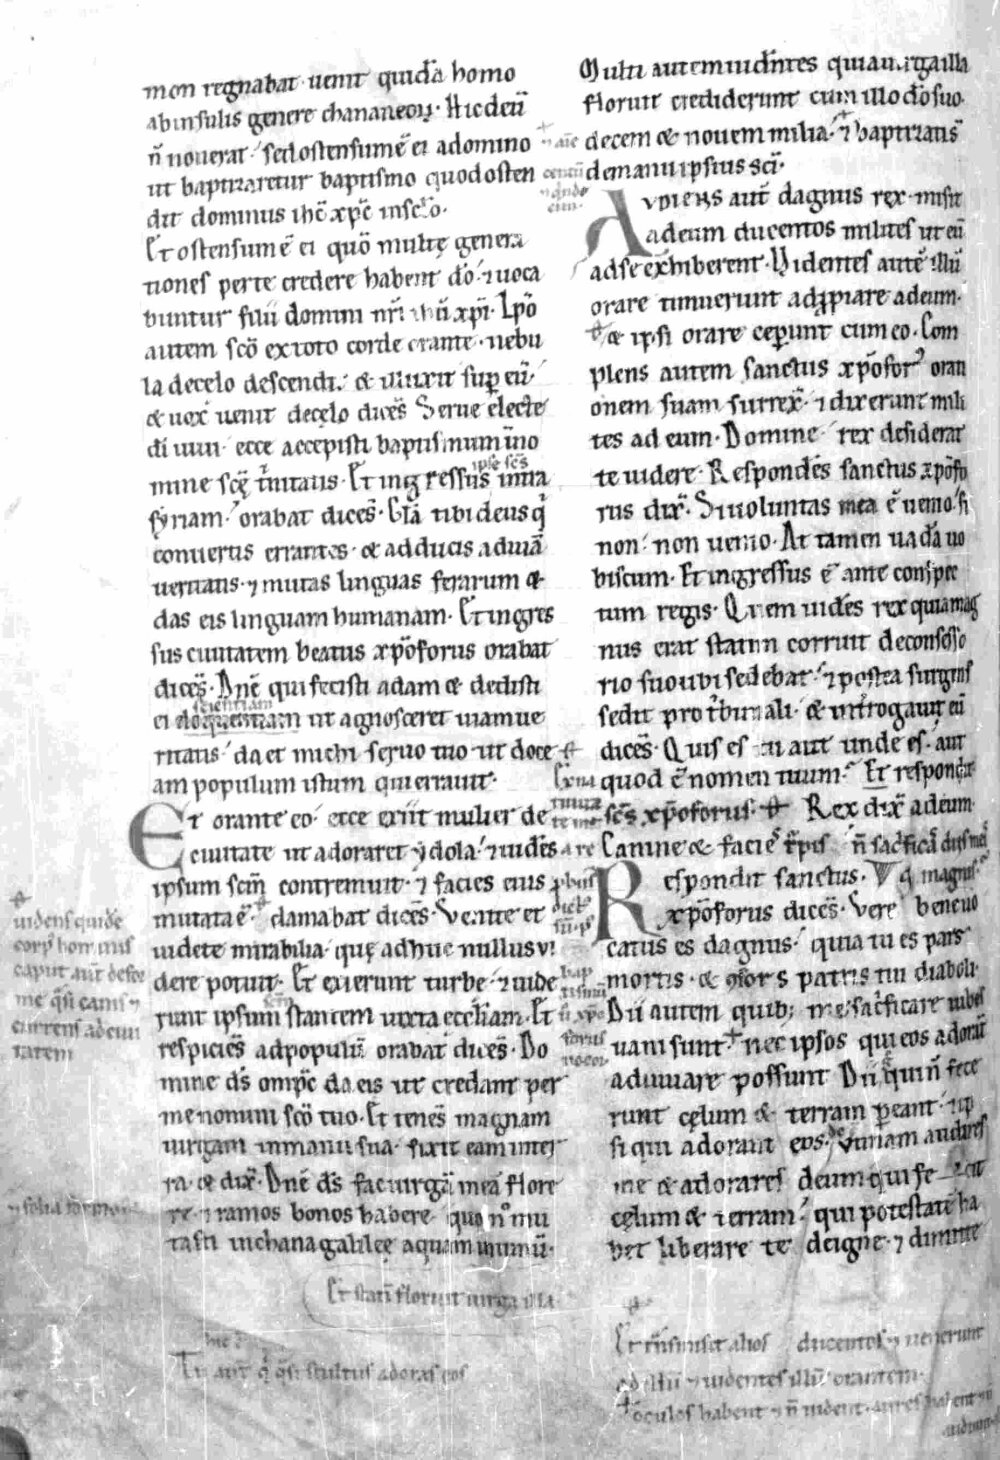 mon regnabat uenit quidā homo
ab insulis genere chananeoꝝ. Hic deū
n̄ nouerat. sed ostensum ē ei a domino
ut baptizaretur baptismo quod osten
dit dominus ihc̄ xp̄c in sc̄lo.
Et ostensum ē ei quō multę genera
tiones per te credere habent dō. ⁊ uoca
buntur filii domini nr̄i ihū xp̄i. Ip̄o
autem sc̄o ex toto corde orante. nebu
la de celo descendit. & illuxit sup eū.
& uox uenit de cęlo dicēs Serue electe
di uiui ecce accepisti baptismum in no
mine scę trinitatis. Et ingressus ipse sc̄s in ciuita
syriam. orabat dicēs. Gr̄a tibi deus q
conuertis errantes. & adducis ad uiā
ueritatis. ⁊ mutas linguas ferarum &
das eis linguam humanam. Et ingres
sus ciuitatem beatus xp̄oforus orabat
dicēs. Dn̄e qui fecisti adam & dedisti
ei scientiam loquentiam ut agnosceret uiam ue
ritatis. da et michi seruo tuo ut doce
am populum istum qui errauit.
Et orante eo. ecce exiit mulier de
ciuitate ut adoraret ydola. ⁊ uidēs
ipsum scm̄ contremuit. ⁊ facies eius
mutata ē. clamabat dicēs. Venite et
uidete mirabilia. quę adhuc nullus ui
dere potuit. Et exierunt turbe. ⁊ uide
runt ipsum scm̄ stantem iuxta ecclīam. Et
respiciēs ad populū orabat dicēs. Do
mine ds̄ omp̄c da eis ut credant per
me nomini sc̄o tuo. Et tenēs magnam
uirgam in manu sua. fixit eam in ter
ra. & dix̄. Dn̄e ds̄ fac uirgā meā flore
re. ⁊ ramos bonos habere. quomō mu
tasti in chana galileę aquam in uinū.
Et stati floruit uirga illa
Tu aut q qsi stultus adoras eos
uidens quidē
corp hominis
caput aut̄ defor
me qsi canis ⁊
currens ad ciui
tatem
Multi autem uidentes quia uirga illa
floruit crediderunt cum illo dō suo.
decem & nouem milia. ⁊ baptizati s̄
de manu ipsius sci.
Audiens aut̄ dagnus rex. misit
ad eum ducentos milites ut eū
ad se exhiberent. Videntes autē illū
orare timuerunt adpropiare ad eum.
& ipsi orare ceperunt cum eo. Com
plens autem sanctus xp̄ofor orati
onem suam surrex̄. ⁊ dixerunt mili
tes ad eum. Domine rex desiderat
te uidere. Respondēs sanctus xp̄ofo
rus dix̄. Si uoluntas mea ē uenio. si
non. non uenio. Attamen uadā uo
biscum. Et ingressus ē ante conspec
tum regis. Quem uidēs rex quia mag
nus erat statim corruit de consisto
rio suo ubi sedebat. ⁊ postea surgens
sedit pro tribunali. & interrogauit eū
dicēs. Quis es tu aut unde es. aut
quod ē nomen tuum. Et respondit
scs xp̄oforus. Rex dix̄ ad eum.
Canine & facie n̄ sacrificā diis meis
Respondit sanctus. q magnus
xp̄oforus dicēs. Vere bene uo
catus es dagnus. quia tu es pars
mortis. & consors patris tui diaboli.
Dii autem quib; me sacrificare iubes
uani sunt. nec ipsos qui eos adorāt
adiuuare possunt Dii qui n̄ fece
runt cęlum & terram pereant. ⁊ ip
si qui adorant eos. Vtinam audires
me & adorares deum qui fecit
cęlum & terram. qui potestatē ha
bet liberare te de igne. ⁊ dimitte
Et rursū misit alios ducentos ⁊ uenerunt
ad illū ⁊ uidentes illū orantem.
oculos habent ⁊ n̄ uident. aures habent ⁊ n̄
audiunt